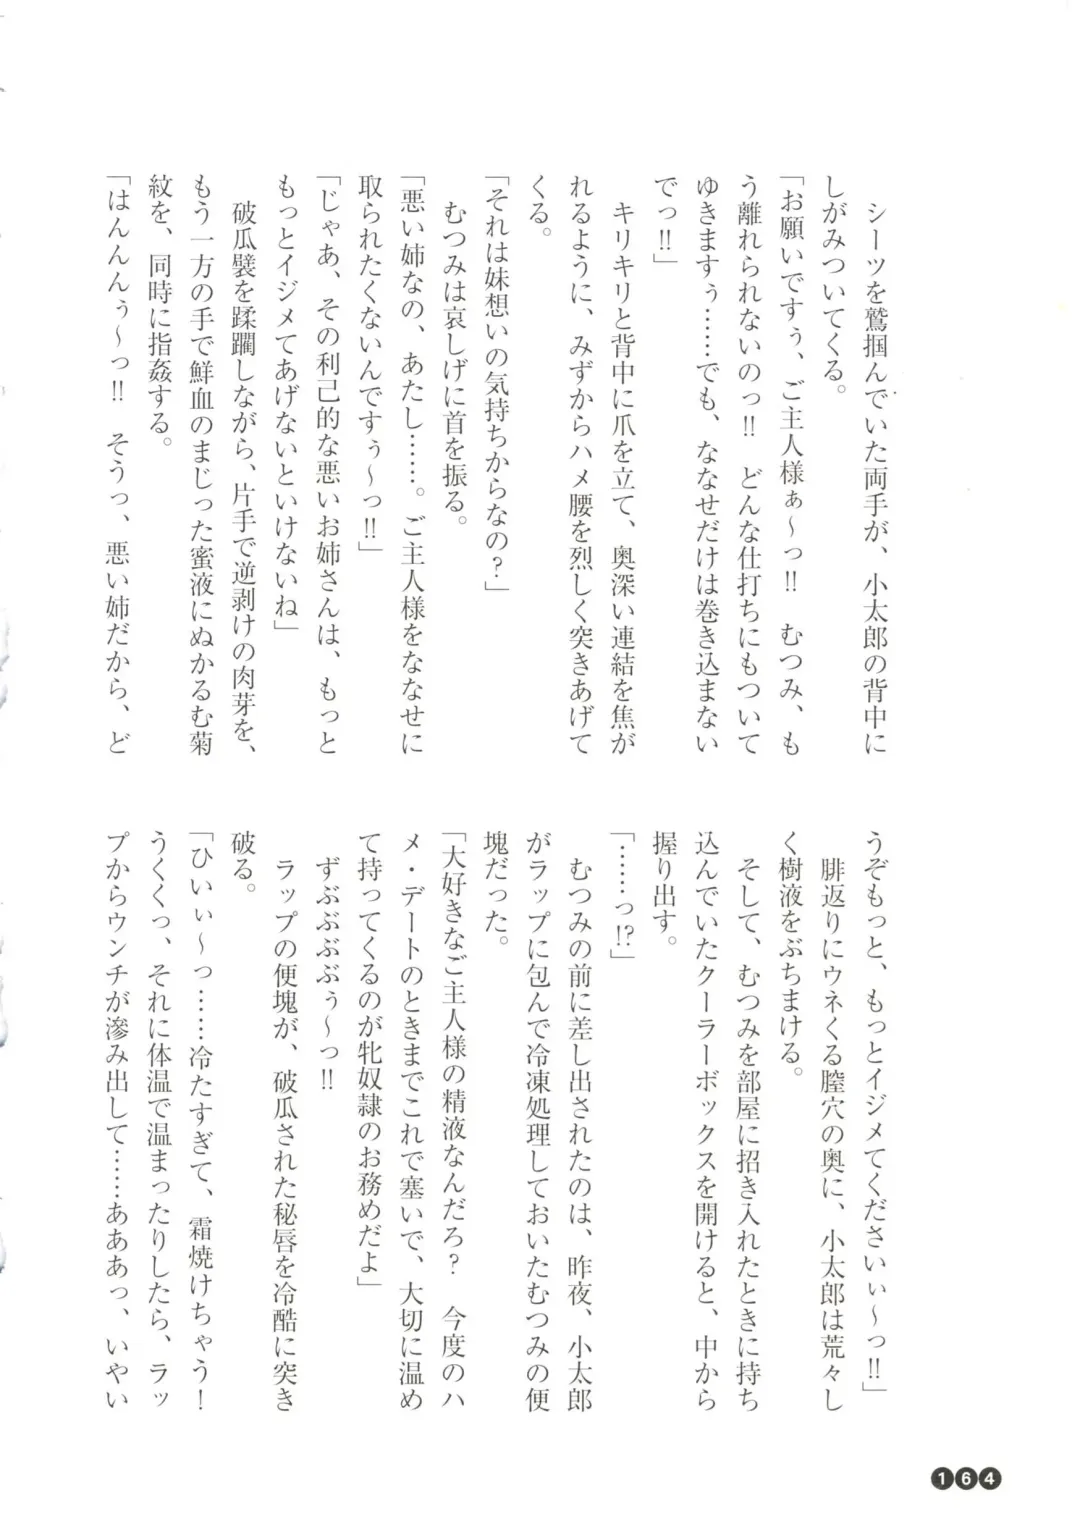 シーツを鷲掴んでいた両手が、小太郎の背中に
しがみついてくる。
「お願いですぅ、ご主人様ぁ～っ!!　むつみ、も
う離れられないのっ!!　どんな仕打ちにもついて
ゆきますぅ……でも、ななせだけは巻き込まない
でっ!!」
キリキリと背中に爪を立て、奥深い連結を焦が
れるように、みずからハメ腰を烈しく突きあげて
くる。
「それは妹想いの気持ちからなの？」
むつみは哀しげに首を振る。
「悪い姉なの、あたし……。ご主人様をななせに
取られたくないんですぅ～っ!!」
「じゃあ、その利己的な悪いお姉さんは、もっと
もっとイジメてあげないといけないね」
破瓜襞を蹂躙しながら、片手で逆剥けの肉芽を、
もう一方の手で鮮血のまじった蜜液にぬかるむ菊
紋を、同時に指姦する。
「はんんんぅ～っ!!　そうっ、悪い姉だから、ど
うぞもっと、もっとイジメてくださいぃ～っ!!」
腓返りにウネくる膣穴の奥に、小太郎は荒々し
く樹液をぶちまける。
そして、むつみを部屋に招き入れたときに持ち
込んでいたクーラーボックスを開けると、中から
握り出す。
「……っ!?」
むつみの前に差し出されたのは、昨夜、小太郎
がラップに包んで冷凍処理しておいたむつみの便
塊だった。
「大好きなご主人様の精液なんだろ？　今度のハ
メ・デートのときまでこれで塞いで、大切に温め
て持ってくるのが牝奴隷のお務めだよ」
ずぶぶぶぶぅ～っ!!
ラップの便塊が、破瓜された秘唇を冷酷に突き
破る。
「ひいぃ～っ……冷たすぎて、霜焼けちゃう！
うくくっ、それに体温で温まったりしたら、ラッ
プからウンチが滲み出して……あああっ、いやい
164